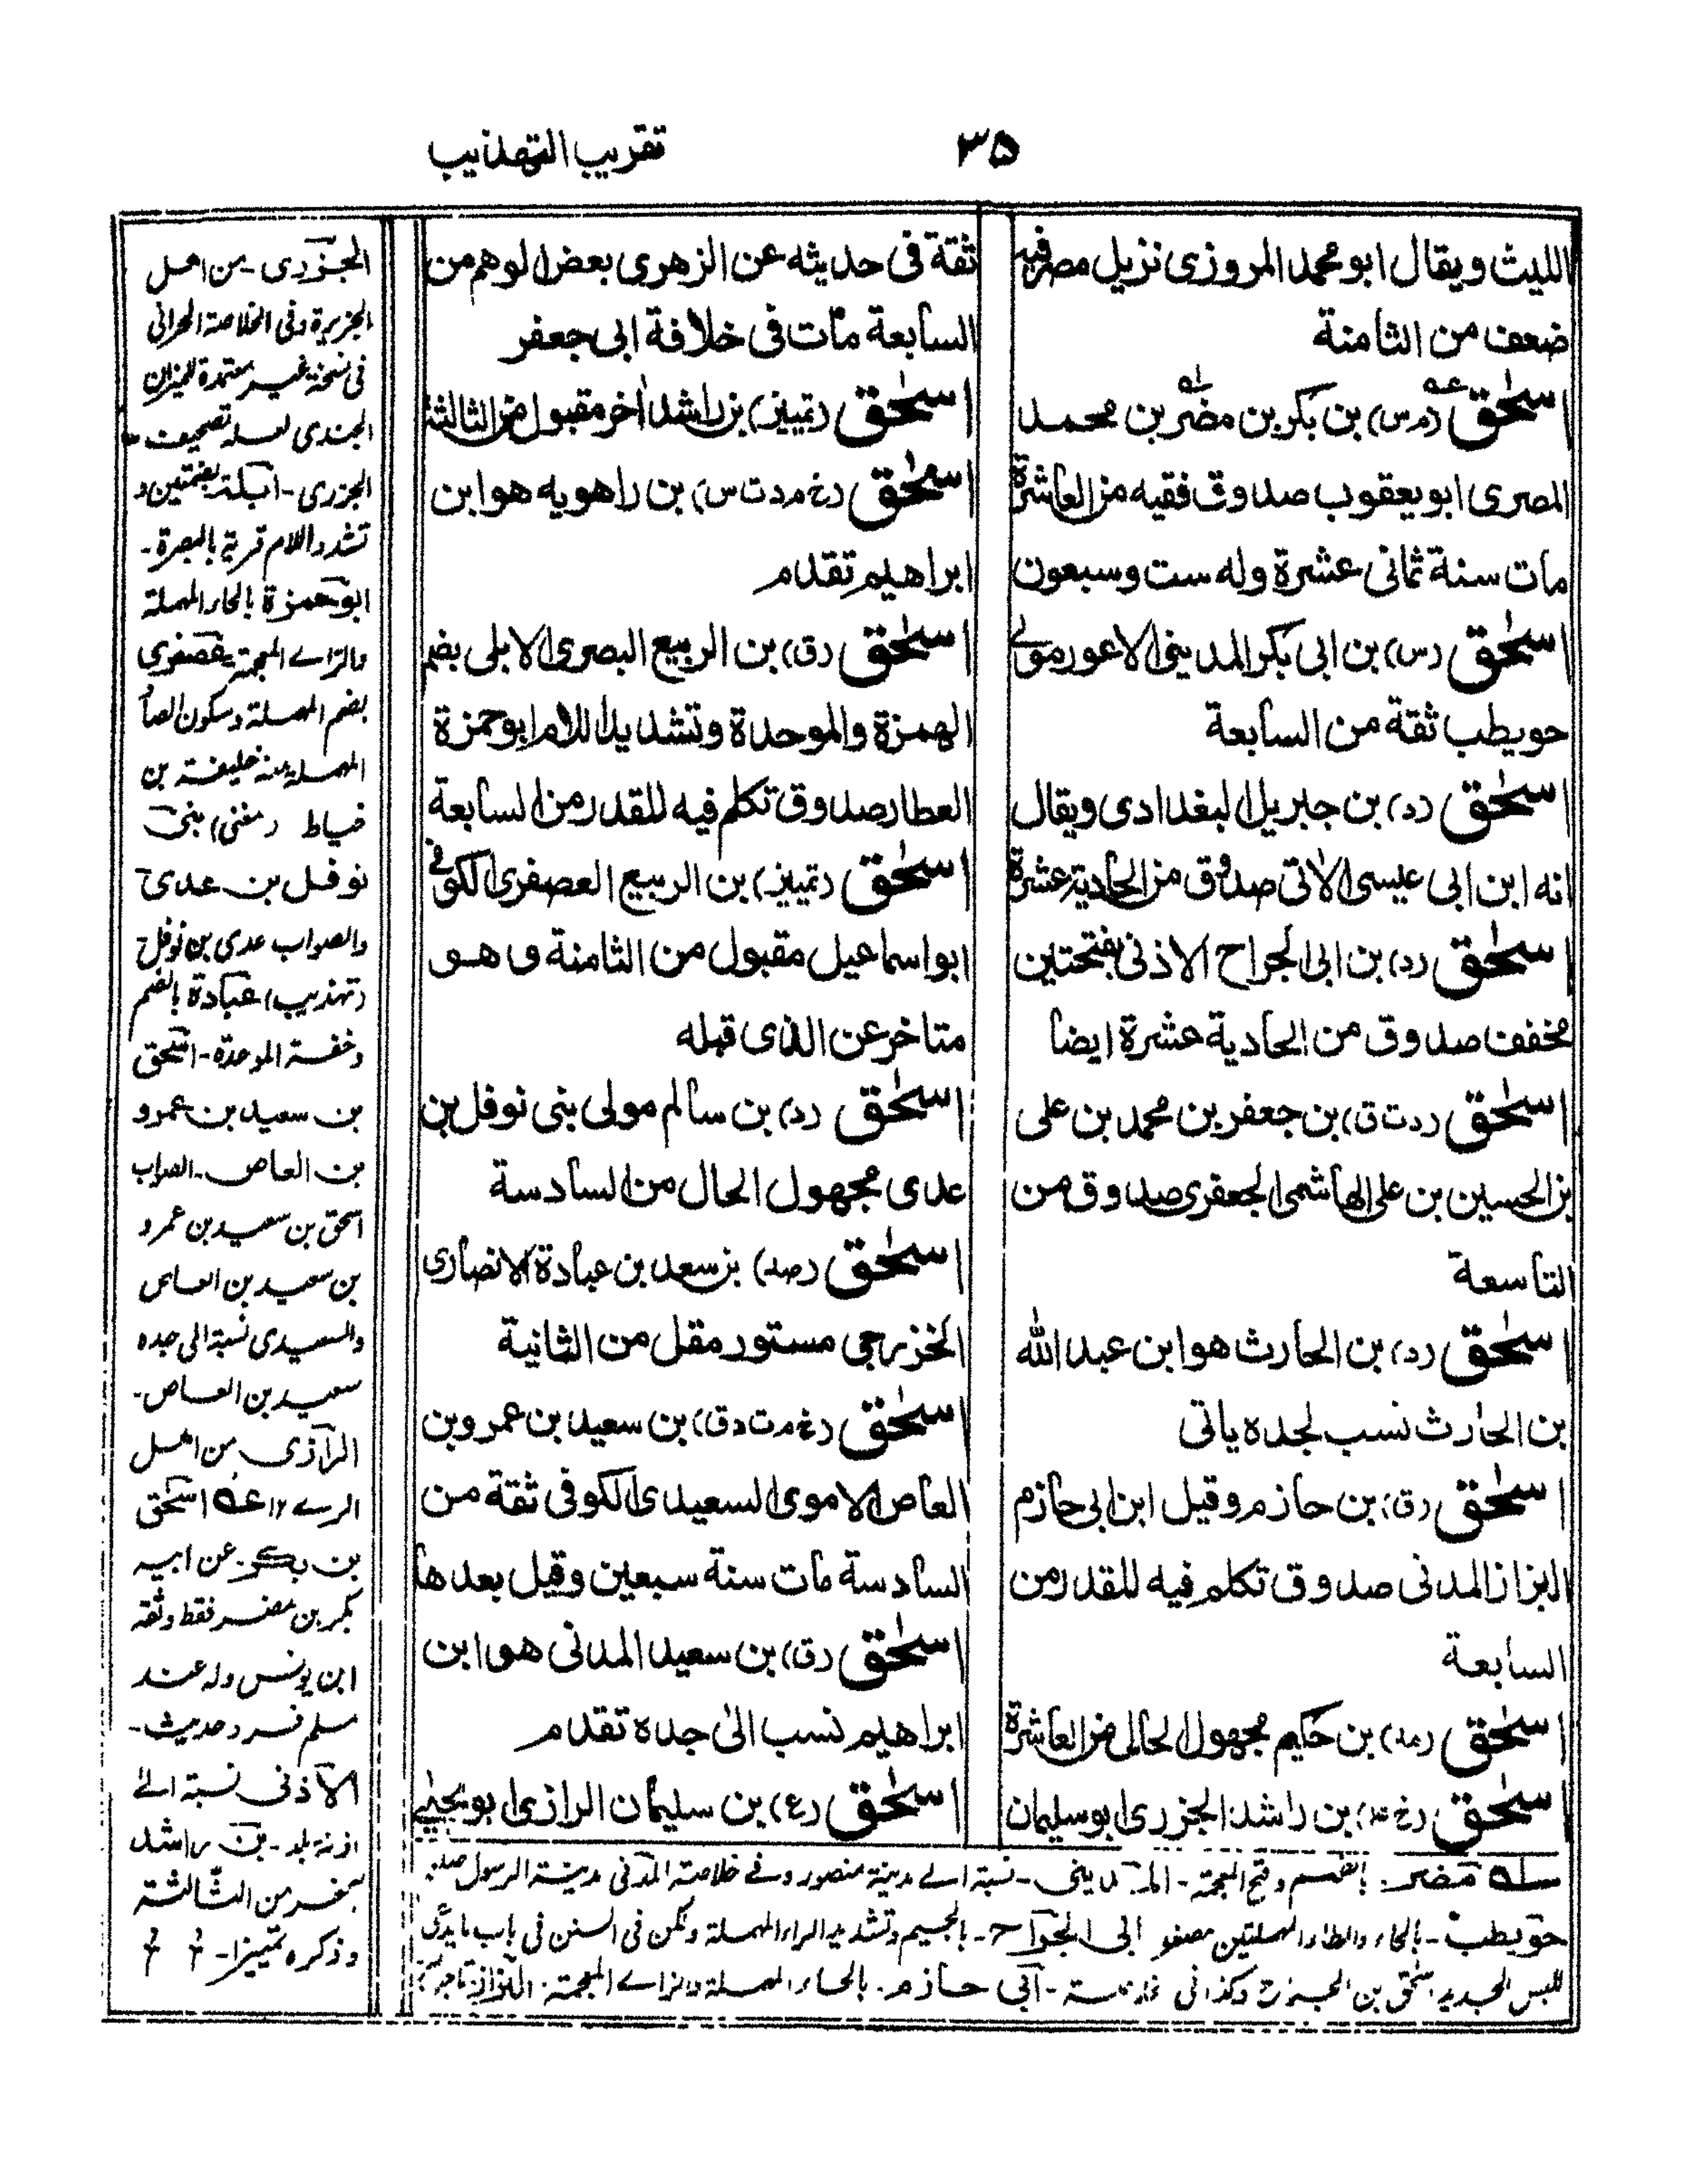 ٣٥
تقريب التهذيب
الليث ويقال ابو محمد المروزى نزيل مصر فيه
ضعف من الثامنة
اسحٰق (م س) بن بكر بن مضر بن محمد
المصرى ابو يعقوب صدوق فقيه من العاشرة
مات سنة ثمانى عشرة وله ست وسبعون
اسحٰق (س) بن ابى بكر المدينى الاعور مولى
حويطب ثقة من السابعة
اسحٰق (د) بن جبريل البغدادى ويقال
انه ابن ابى عيسى الاتى صدوق من الحادية عشرة
اسحٰق (د) بن ابى الجراح الاذنى بفتحتين
مخفف صدوق من الحادية عشرة ايضا
اسحٰق (ر د ت ق) بن جعفر بن محمد بن على
بن الحسين بن على الهاشمى الجعفرى صدوق من
التاسعة
اسحٰق (د) بن الحارث هو ابن عبد الله
بن الحارث نسب لجده ياتى
اسحٰق (ق) بن حازم وقيل ابن ابى حازم
البزاز المدنى صدوق تكلم فيه للقدر من
السابعة
اسحٰق (مد) بن حكيم مجهول الحال من العاشرة
اسحٰق (خ عه) بن راشد الجزرى ابو سليمان
ثقة فى حديثه عن الزهرى بعض الوهم من
السابعة مات فى خلافة ابى جعفر
اسحٰق (تمييز) بن راشد اٰخر مقبول من الثالثة
اسحٰق (خ م د ت س) بن راهويه هو ابن
ابراهيم تقدم
اسحٰق (ق) بن الربيع البصرى الابلى بضم
الهمزة والموحدة وتشديد اللام ابو حمزة
العطار صدوق تكلم فيه للقدر من السابعة
اسحٰق (تمييز) بن الربيع العصفرى الكوفى
ابو اسماعيل مقبول من الثامنة و هو
متاخر عن الذى قبله
اسحٰق (د) بن سالم مولى بنى نوفل بن
عدى مجهول الحال من السادسة
اسحٰق (صد) بن سعد بن عبادة الانصارى
الخزرجى مستور مقل من الثانية
اسحٰق (خ م ت د ق) بن سعيد بن عمرو بن
العاص الاموى السعيدى الكوفى ثقة من
السادسة مات سنة سبعين وقيل بعدها
اسحٰق (ق) بن سعيد المدنى هو ابن
ابراهيم نسب الىٰ جده تقدم
اسحٰق (ع) بن سليمان الرازى ابو يحيىٰ
الجزرى - من اهل
الجزيرة وفى الخلاصة الحرانى
فى نسخة غير معتمدة للميزان
الجندى لعله تصحيف
الجزرى - ابلة بضمتين و
تشدد اللام قرية بالبصرة -
ابو حمزة بالحاء المهملة
والزاے المعجمة عصفرى
بضم المهملة وسكون الصاد
المهملة خليفة بن
خياط (مغنى) بنى
نوفل بن عدى
والصواب عدى بن نوفل
(تهذيب) عبادة بالضم
وخفة الموحدة - اسحق
بن سعيد بن عمرو
بن العاص - الصواب
اسحق بن سعيد بن عمرو
بن سعيد بن العاص
والسعيدى نسبة الى جده
سعيد بن العاص -
الرازى من اهل
الرے ١٢ عه اسحق
بن بكر عن ابيه
بكر بن مضر فقط وثقه
ابن يونس وله عند
مسلم فرد حديث -
الاذنى نسبة الے
اذنة بلد - بن راشد
من الثالثة
وذكره تمييزا -
له مضر بالضم وفتح المعجمة - المدينى - نسبة الے مدينة منصور وفے خلاصة المدنى مدينة الرسول
حويطب - بالحاء والطاء المهملتين مصغر ابى الجراح - بالجيم وتشديد الراء المهملة ولكن فى السنن فى باب ما يدعى
للبس الجديد اسحق بن الجراح وكذا فى - ابى حازم - بالحاء المهملة والزاے المعجمة - البزاز تاجر